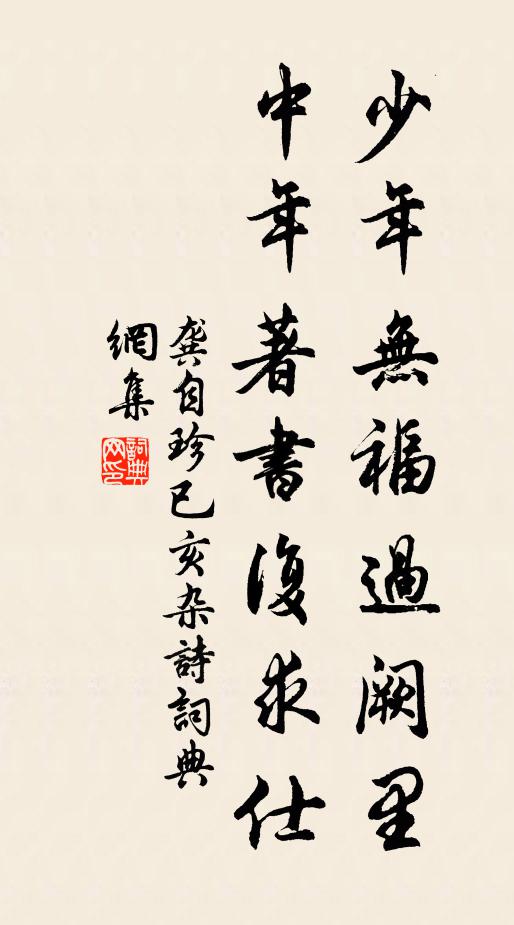 少年無福過闕里
中年著書復求仕
龔自珍己亥杂詩詞典
網集
詞典
网印